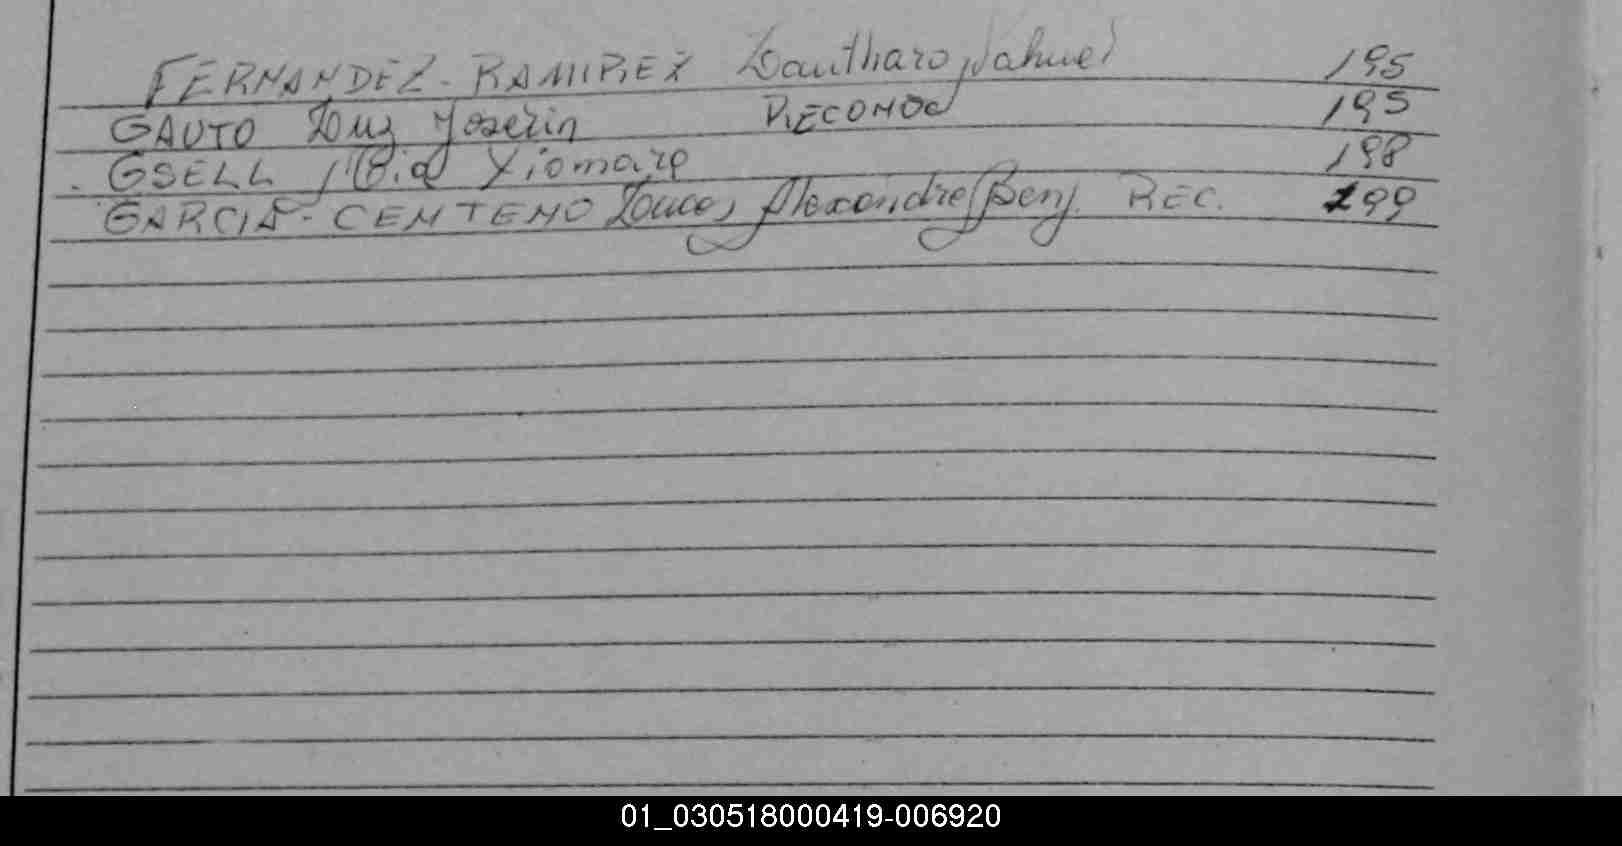 FERNANDEZ-RAMIREZ Lautharo Nahuel 195
GAUTO Luz Joselin RECONOC 195
GSELL, Mia Xiomara 198
GARCIA-CENTENO Lucas Alexandre Benj. REC. 199
01_030518000419-006920